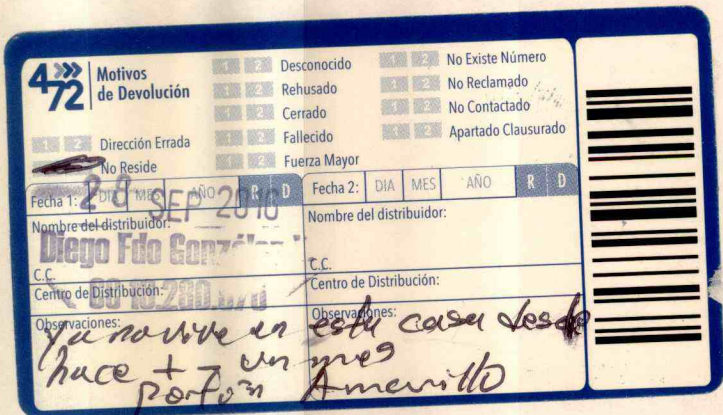 472 Motivos de Devolución
1 2 Desconocido
1 2 Rehusado
1 2 Cerrado
1 2 Fallecido
1 2 Fuerza Mayor
1 2 No Existe Número
1 2 No Reclamado
1 2 No Contactado
1 2 Apartado Clausurado
1 2 Dirección Errada
No Reside
Fecha 1: DIA MES AÑO R D
28 SEP 2016
Nombre del distribuidor:
Diego Fdo
C.C.
Centro de Distribución:
Observaciones:
Fecha 2: DIA MES AÑO R D
Nombre del distribuidor:
C.C.
Centro de Distribución:
Observaciones:
Ya no vive en esta casa desde
hace + - un mes
portón Amarillo